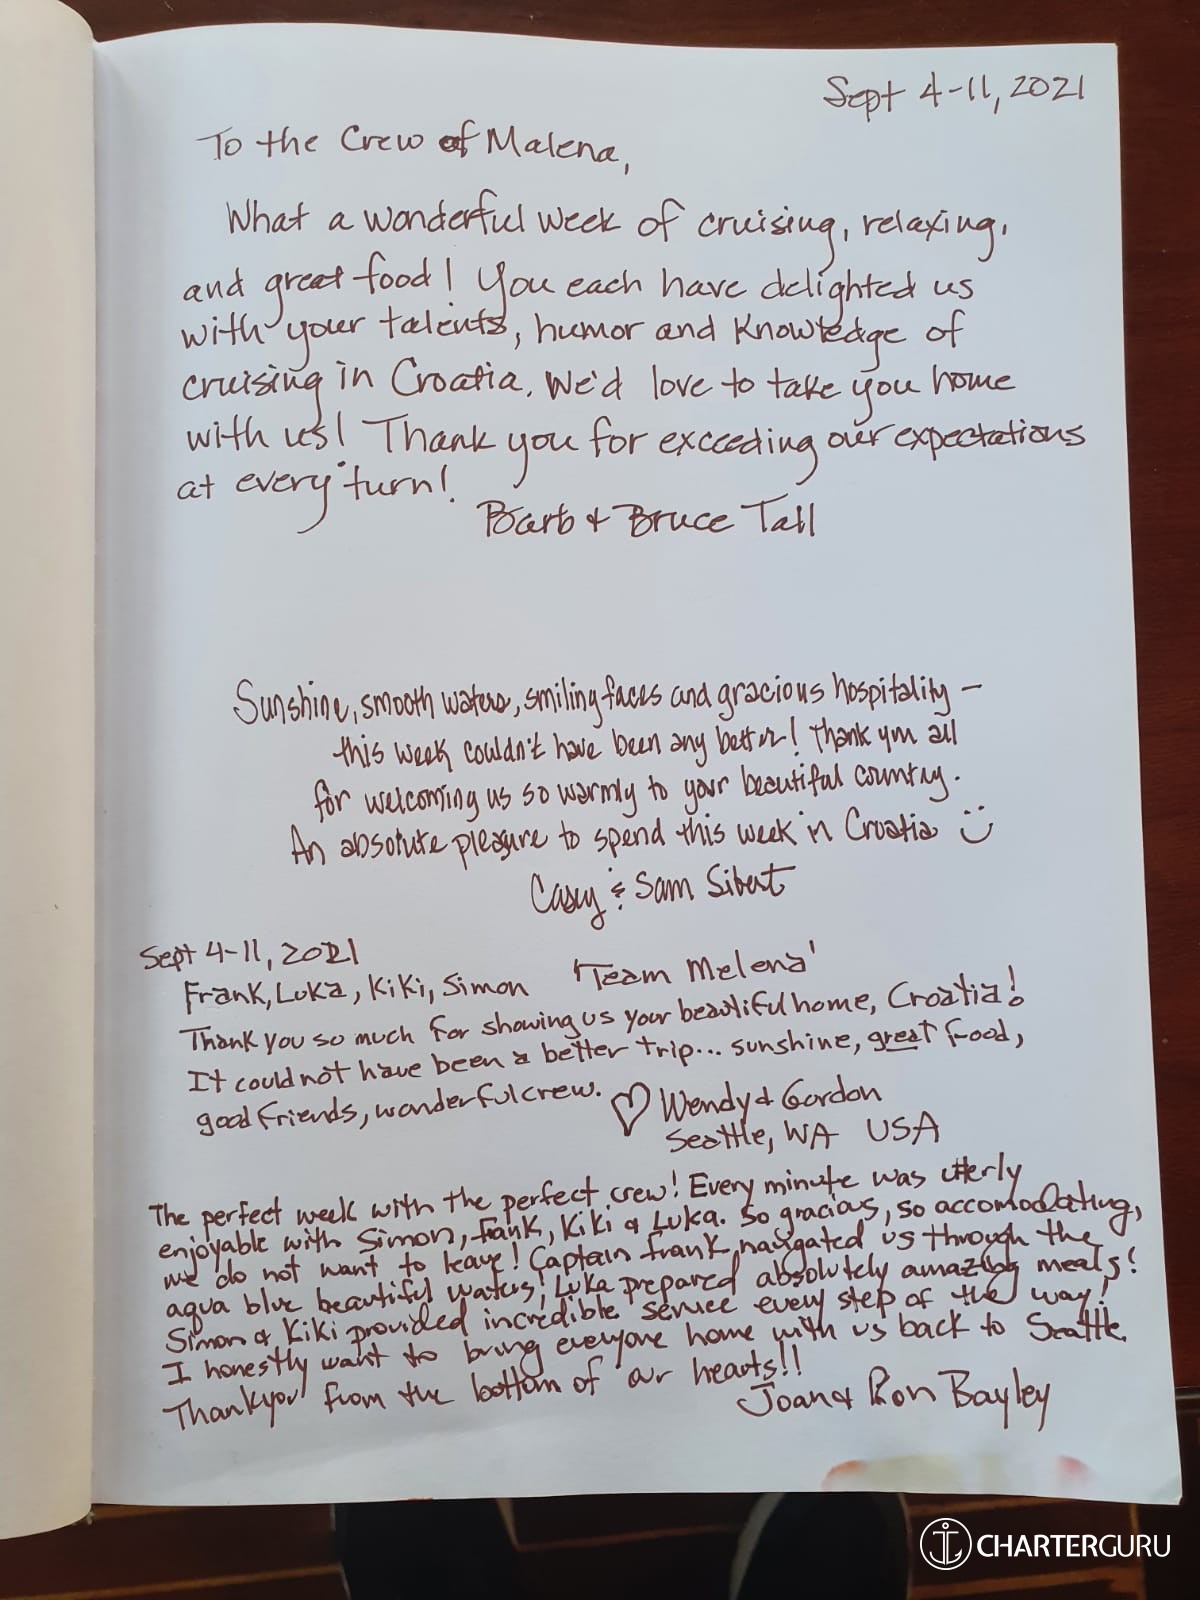 Sept 4-11, 2021
To the Crew of Malena,
What a wonderful week of cruising, relaxing,
and great food! You each have delighted us
with your talents, humor and knowledge of
cruising in Croatia. We'd love to take you home
with us! Thank you for exceeding our expectations
at every turn!
Barb & Bruce Tall
Sunshine, smooth waters, smiling faces and gracious hospitality -
this week couldn't have been any better! Thank you all
for welcoming us so warmly to your beautiful country.
An absolute pleasure to spend this week in Croatia
Casey & Sam Sibert
Sept 4-11, 2021
Frank, Luka, Kiki, Simon 'Team Melena'
Thank you so much for showing us your beautiful home, Croatia!
It could not have been a better trip... sunshine, great food,
good friends, wonderful crew. ♡ Wendy & Gordon
Seattle, WA USA
The perfect week with the perfect crew! Every minute was utterly
enjoyable with Simon, Frank, Kiki & Luka. So gracious, so accomodating,
we do not want to leave! Captain Frank navigated us through the
aqua blue beautiful waters! Luka prepared absolutely amazing meals!
Simon & Kiki provided incredible service every step of the way!
I honestly want to bring everyone home with us back to Seattle.
Thankyou from the bottom of our hearts!!
Joan & Ron Bayley
CHARTERGURU